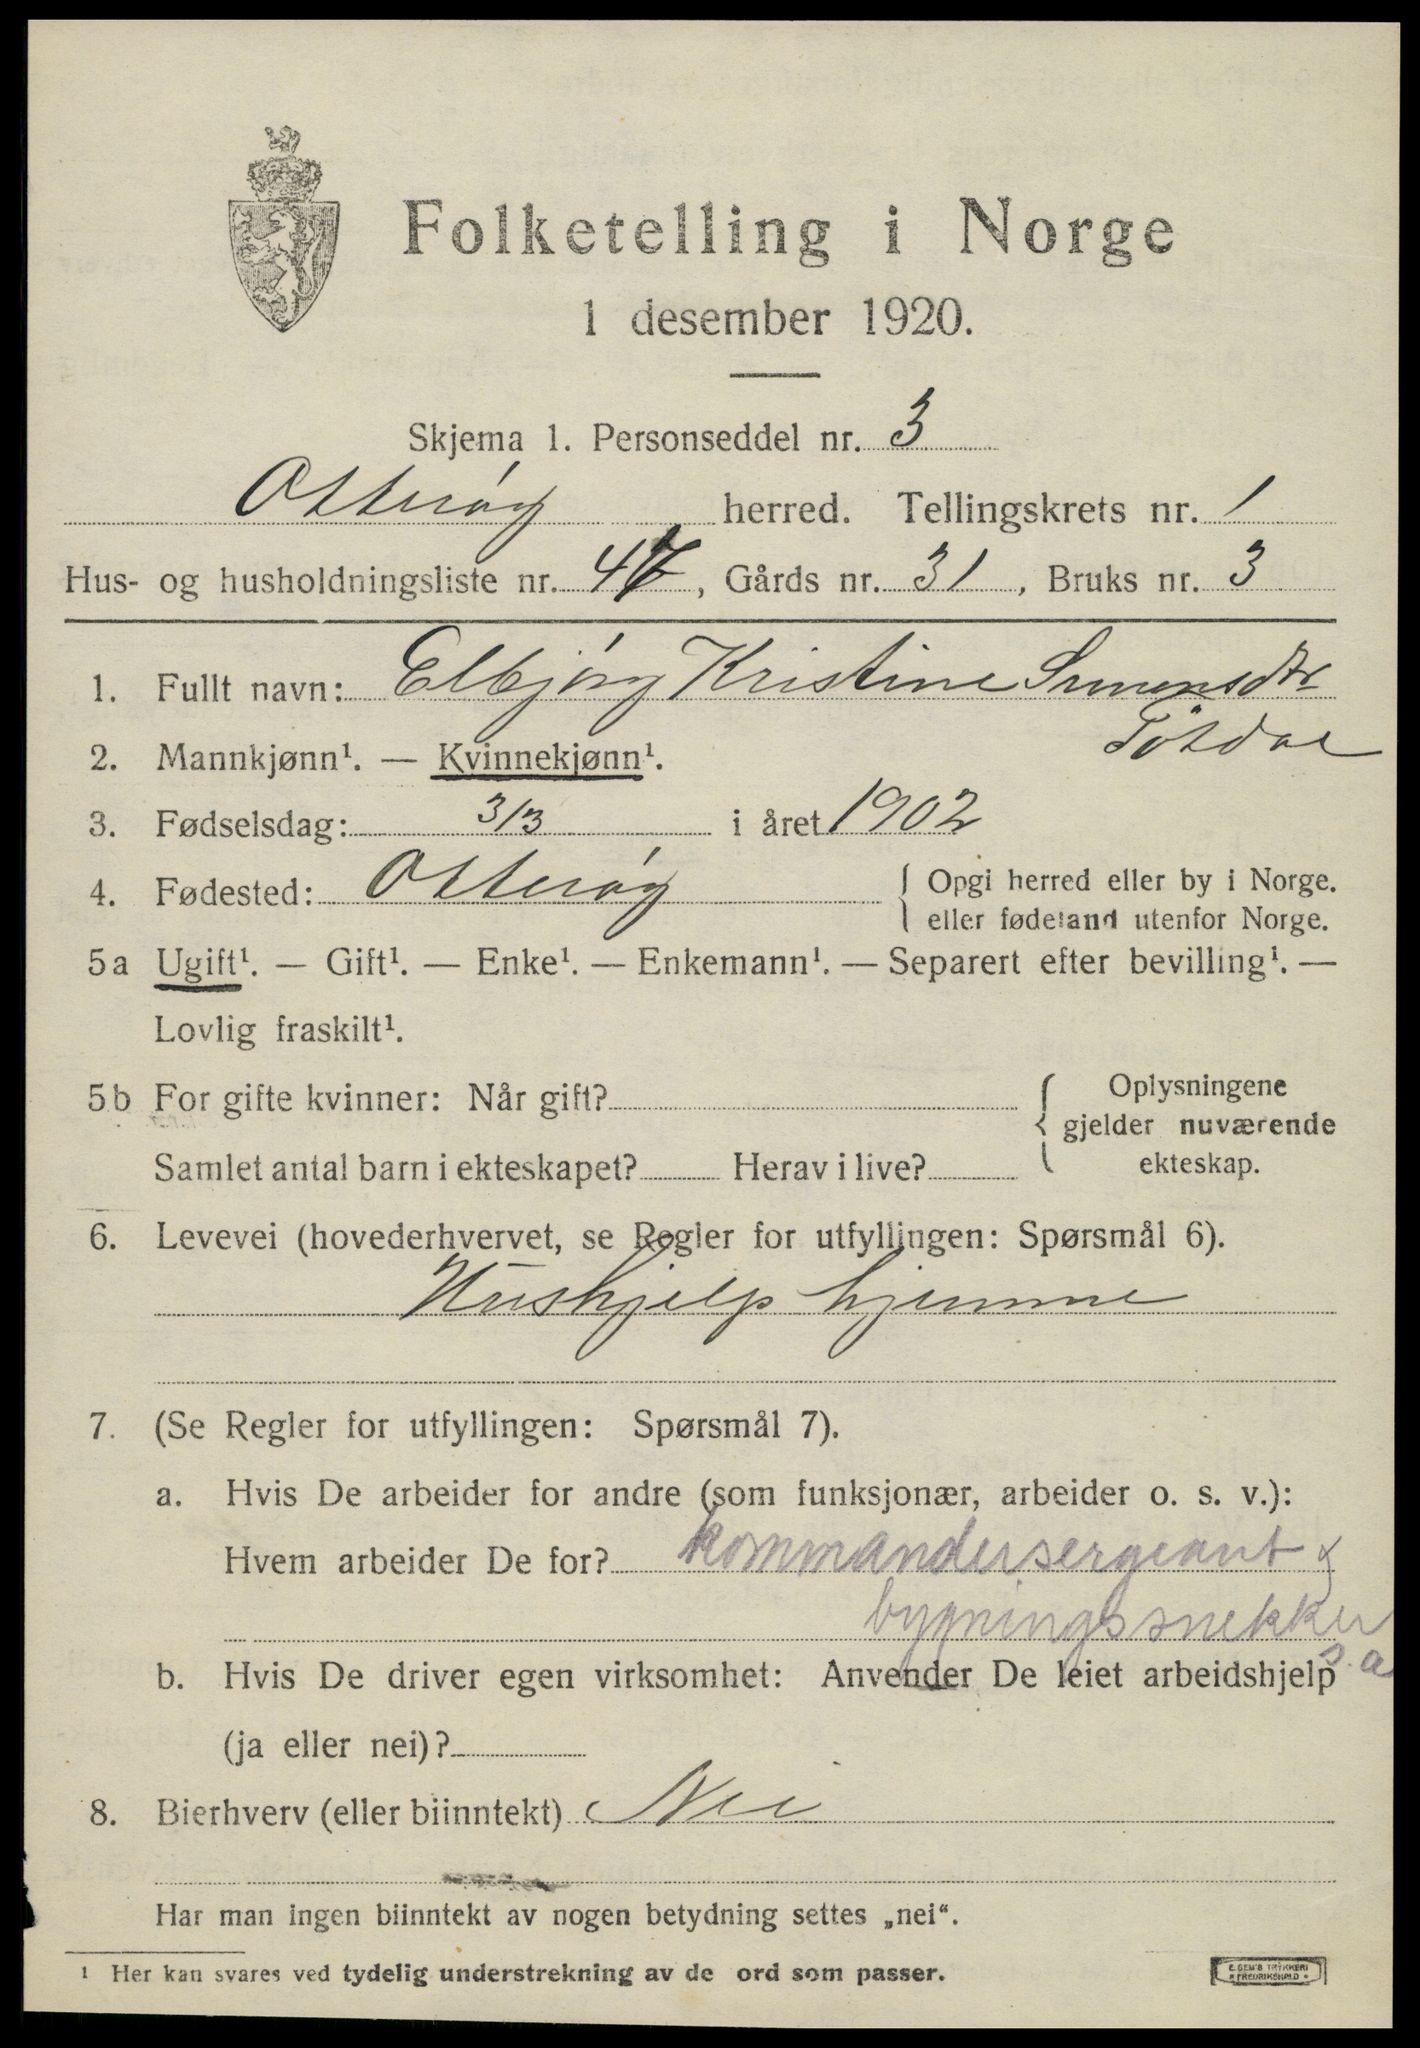 Folketelling i Norge
1 desember 1920.
Skjema 1. Personseddel nr. 3
Otterøy herred. Tellingskrets nr. 1
Hus- og husholdningsliste nr. 47, Gårds nr. 31, Bruks nr. 3
1. Fullt navn: Elbjørg Kristine Simensdtr
2. Mannkjønn¹. — Kvinnekjønn¹.
3. Fødselsdag: 3/3 i året 1902
4. Fødested: Otterøy { Opgi herred eller by i Norge.
eller fødeland utenfor Norge.
5a Ugift¹. — Gift¹. — Enke¹. — Enkemann¹. — Separert efter bevilling¹. —
Lovlig fraskilt¹.
5b For gifte kvinner: Når gift? { Oplysningene
gjelder nuværende
Samlet antal barn i ekteskapet? Herav i live? ekteskap.
6. Levevei (hovederhvervet, se Regler for utfyllingen: Spørsmål 6).
Hushjelp hjemme
7. (Se Regler for utfyllingen: Spørsmål 7).
a. Hvis De arbeider for andre (som funksjonær, arbeider o. s. v.):
Hvem arbeider De for? kommandersergeant &
bygningssnekker
s.a
b. Hvis De driver egen virksomhet: Anvender De leiet arbeidshjelp
(ja eller nei)?
8. Bierhverv (eller biinntekt) Nei
Har man ingen biinntekt av nogen betydning settes „nei“.
¹ Her kan svares ved tydelig understrekning av de ord som passer.
E. SEM'S TRYKKERI
* FREDRIKSHALD *